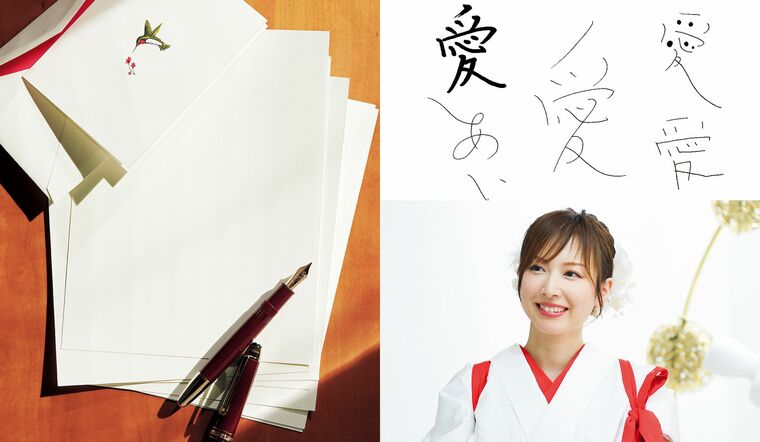 愛
愛
愛
愛
あい